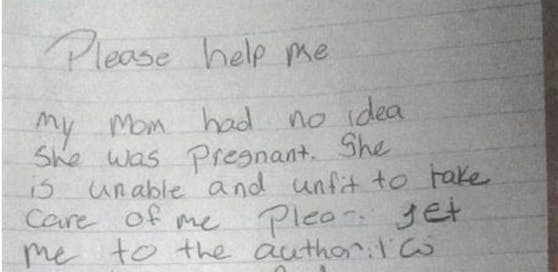 Please help me
my mom had no idea
She was Pregnant. She
is unable and unfit to take
Care of me get
me to the